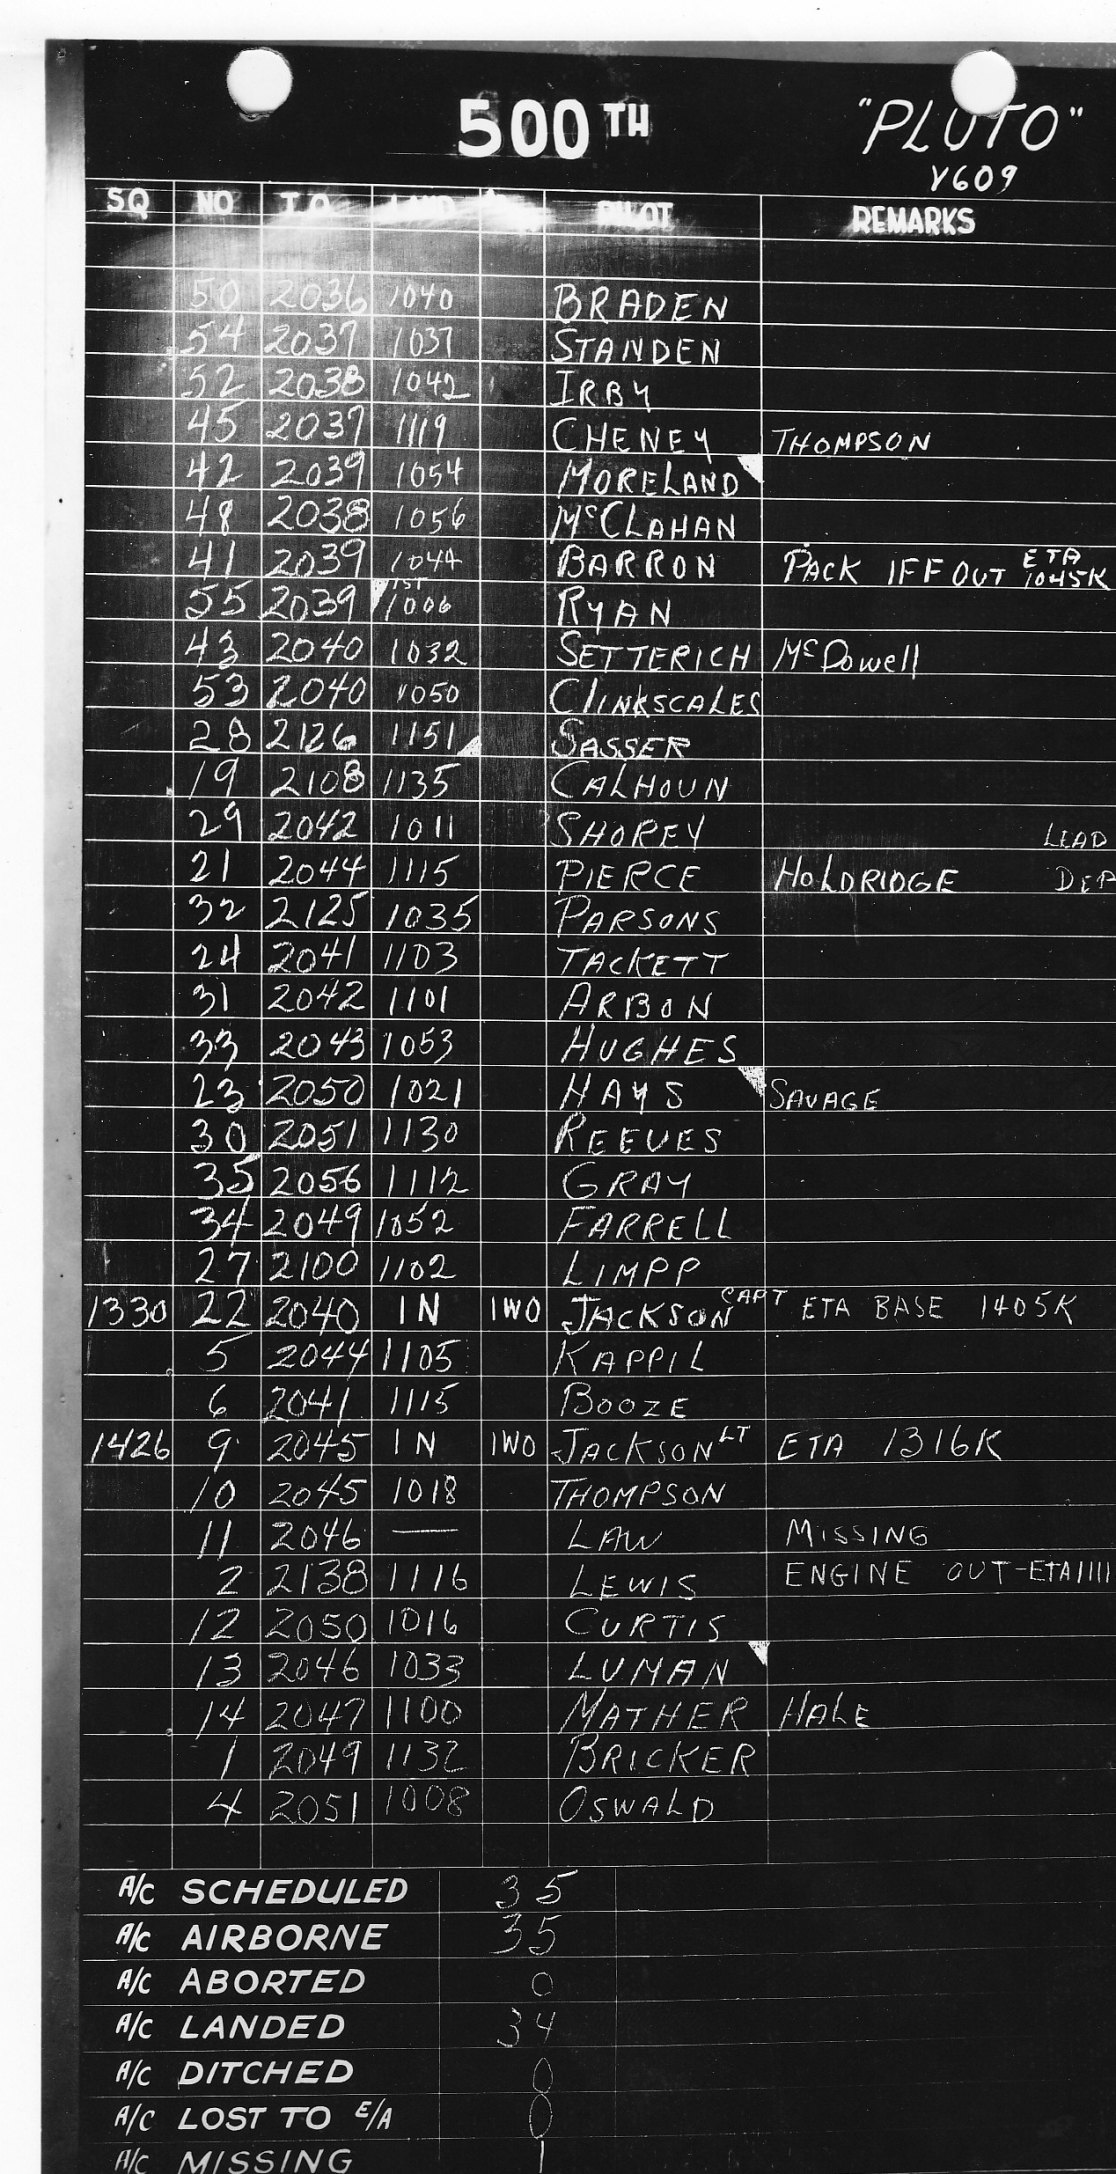 500 TH
"PLUTO"
V609
SQ NO T.O. LAND PILOT REMARKS
50 2036 1040 BRADEN
54 2037 1037 STANDEN
52 2038 1042 IRBY
45 2037 1119 CHENEY THOMPSON
42 2039 1054 MORELAND
48 2038 1056 McCLAHAN
41 2039 1044 BARRON PACK IFF OUT ETA 1045K
55 2039 1ST 1006 RYAN
43 2040 1032 SETTERICH McDowell
53 2040 1050 CLINKSCALES
28 2126 1151 SASSER
19 2108 1135 CALHOUN
29 2042 1011 SHOREY LEAD
21 2044 1115 PIERCE HOLDRIDGE DEP
32 2125 1035 PARSONS
24 2041 1103 TACKETT
31 2042 1101 ARBON
33 2043 1053 HUGHES
23 2050 1021 HAYS SAVAGE
30 2051 1130 REEVES
35 2056 1112 GRAY
34 2049 1052 FARRELL
27 2100 1102 LIMPP
1330 22 2040 IN IWO JACKSON CAPT ETA BASE 1405K
5 2044 1105 KAPPIL
6 2041 1115 BOOZE
1426 9 2045 IN IWO JACKSON LT ETA 1316K
10 2045 1018 THOMPSON
11 2046 — LAW MISSING
2 2138 1116 LEWIS ENGINE OUT-ETA 1111
12 2050 1016 CURTIS
13 2046 1033 LUMAN
14 2047 1100 MATHER HALE
1 2049 1132 BRICKER
4 2051 1008 OSWALD
A/C SCHEDULED 35
A/C AIRBORNE 35
A/C ABORTED 0
A/C LANDED 34
A/C DITCHED 0
A/C LOST TO E/A 0
A/C MISSING 1